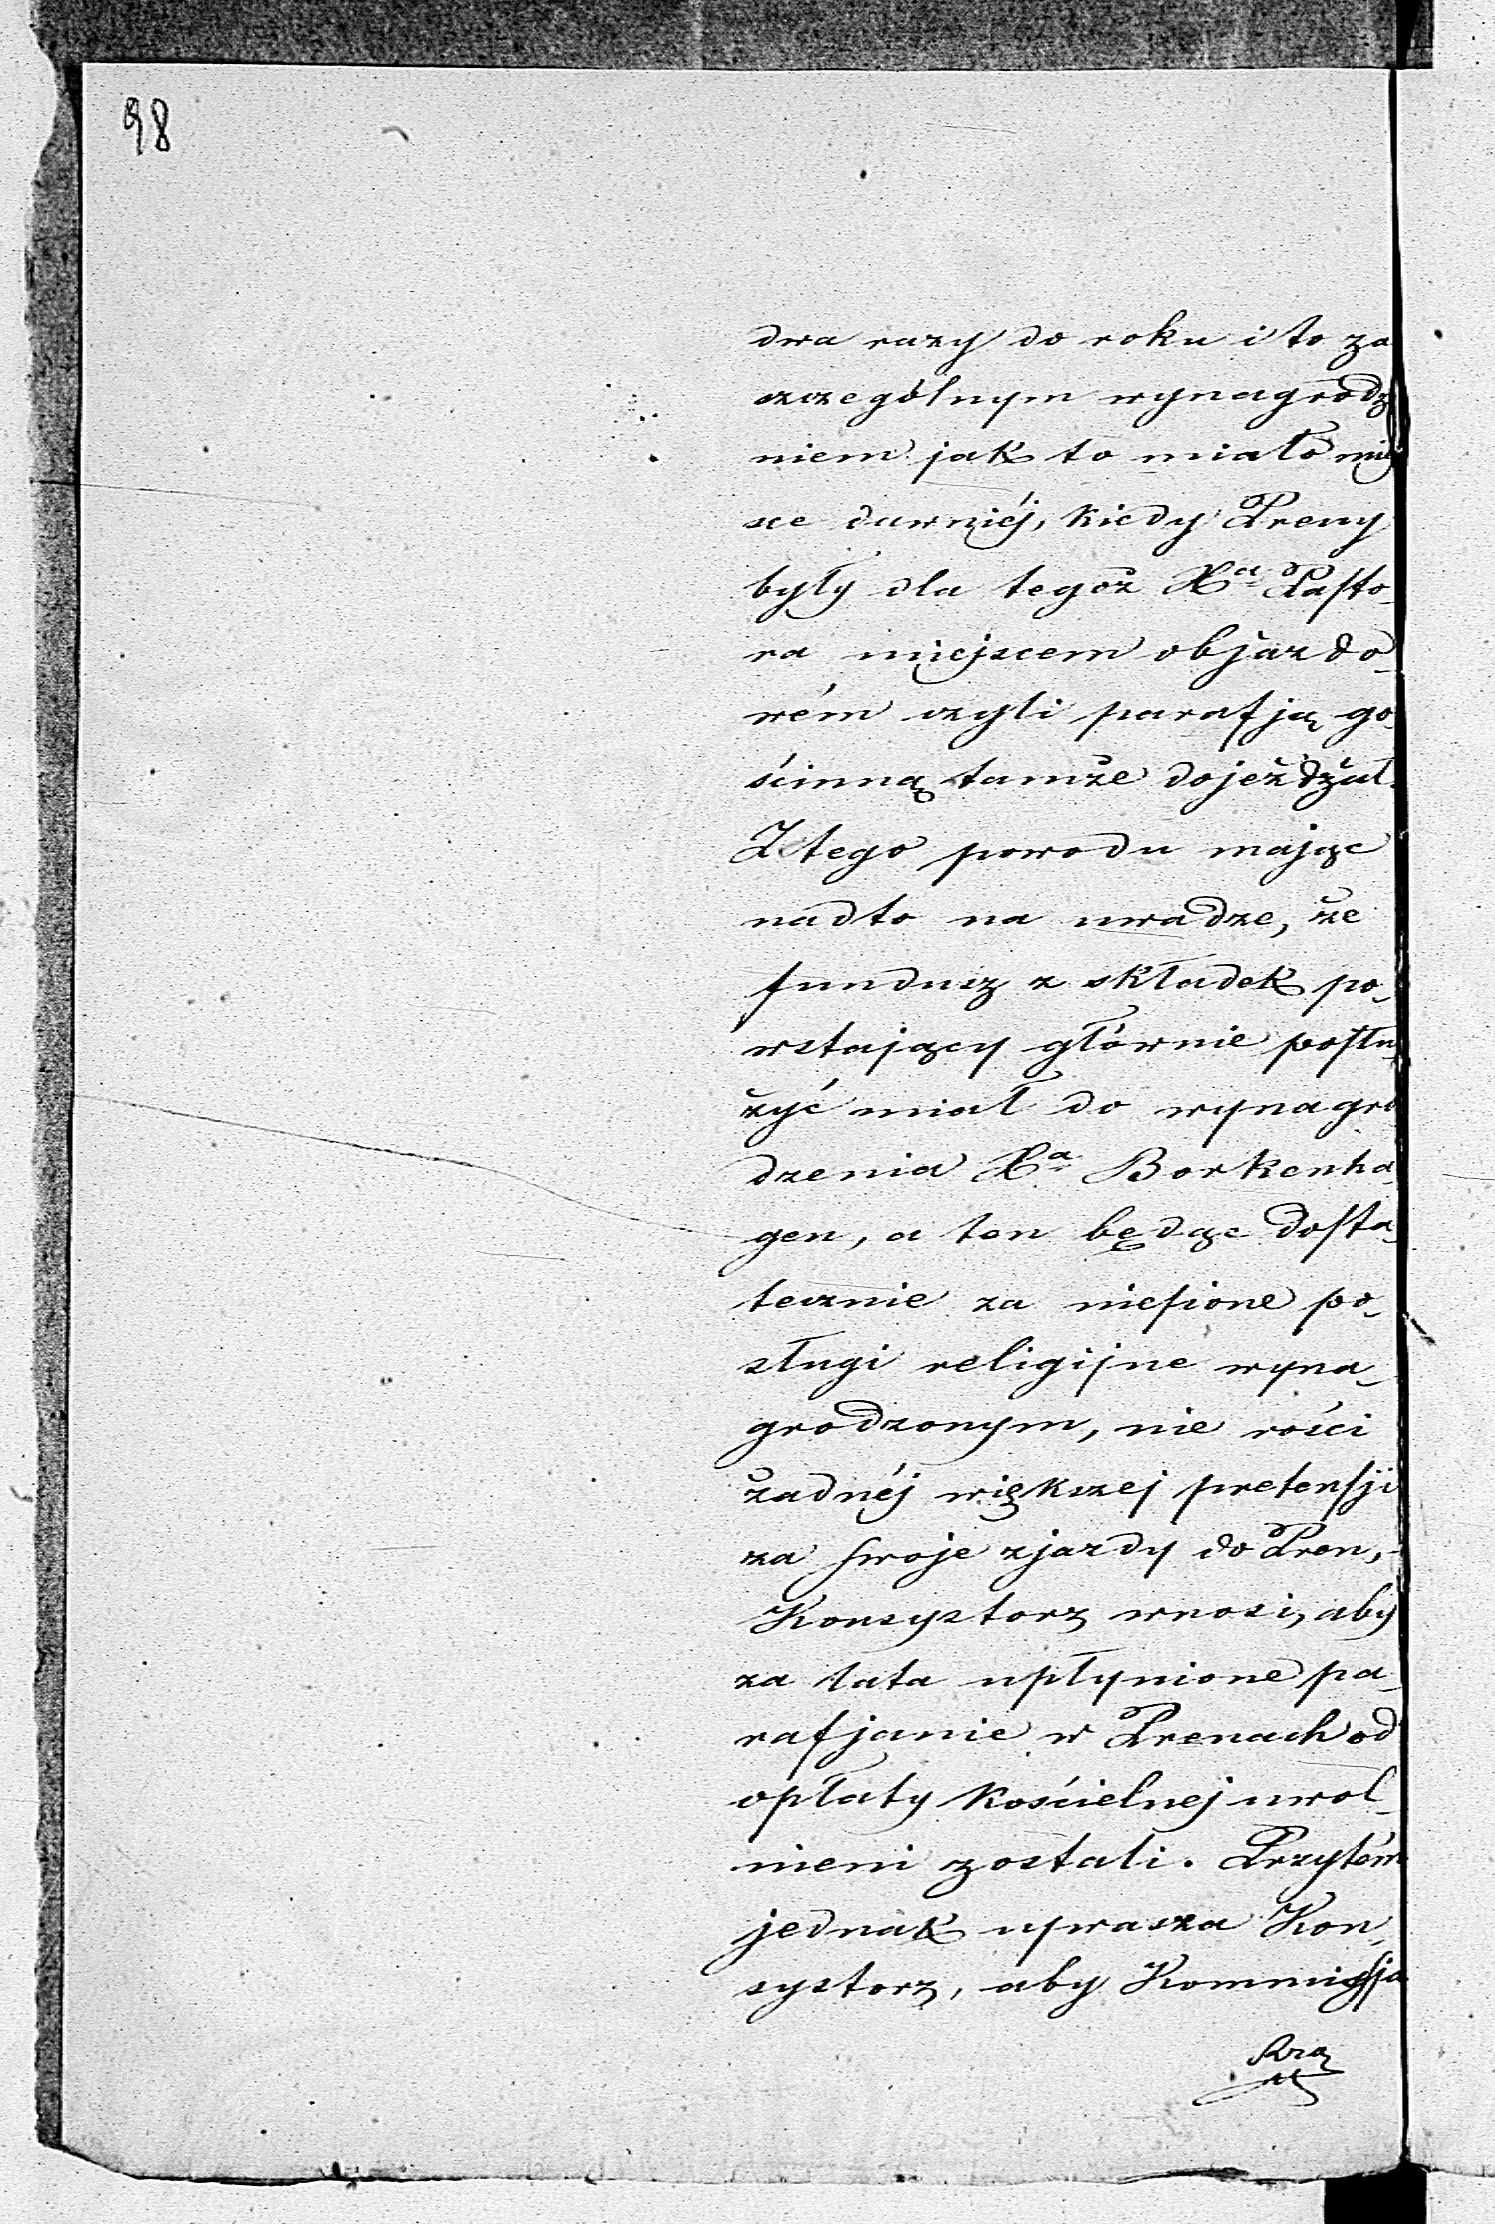 98
dwa razy do roku i to za
szczególnym wynagrodz
niem jak to miało miej
sce dawniéj, kiedy Preny
były dla tegoż Xa Pasto-
ra miejscem objazdo-
wém czyli parafją go-
ścinną tamże dojeżdżał.
Z tego powodu mając
nadto na uwadze, że
fundusz z składek po-
wstający głównie posłu
żyć miał do wynagro
dzenia Xa Borkenha-
gen, a ten będąc dosta-
tecznie za niesione po-
sługi religijne wyna-
grodzonym, nie rości
żadnéj większej pretensji
za swoje zjazdy do Pren,-
Konsystorz wnosi, aby
za lata upłynione pa-
rafjanie w Prenach od
opłaty kościelnej uwol-
nieni zostali. Przytém
jednak uprasza Kon-
systorz, aby Kommissja
Rzą